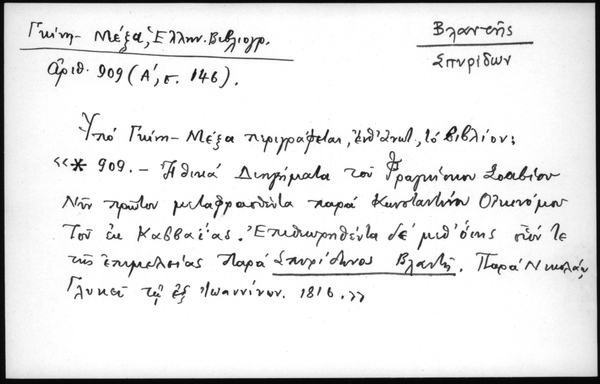 Γκίνη - Μέξα, Ἑλλην. Βιβλιογρ.
ἀριθ. 909 (Α΄, σ. 146).
Βλαντῆς
Σπυρίδων
Ὑπό Γκίνη - Μέξα περιγράφεται, ἐνθ' ἀνωτ., τό βιβλίον:
«* 909. - Ἠθικά Διηγήματα τοῦ Φραγκίσκου Σοαβίου
Νῦν πρῶτον μεταφρασθέντα παρά Κωνσταντίνου Οἰκονόμου
Τοῦ ἐκ Ἐπιθεωρηθέντα δέ μεθ' ὅσης οἷόν τε
τῆς ἐπιμελείας παρά Σπυρίδωνος Βλαντῆ. Παρά Νικολάῳ
Γλυκεῖ τῷ ἐξ Ἰωαννίνων. 1816.»